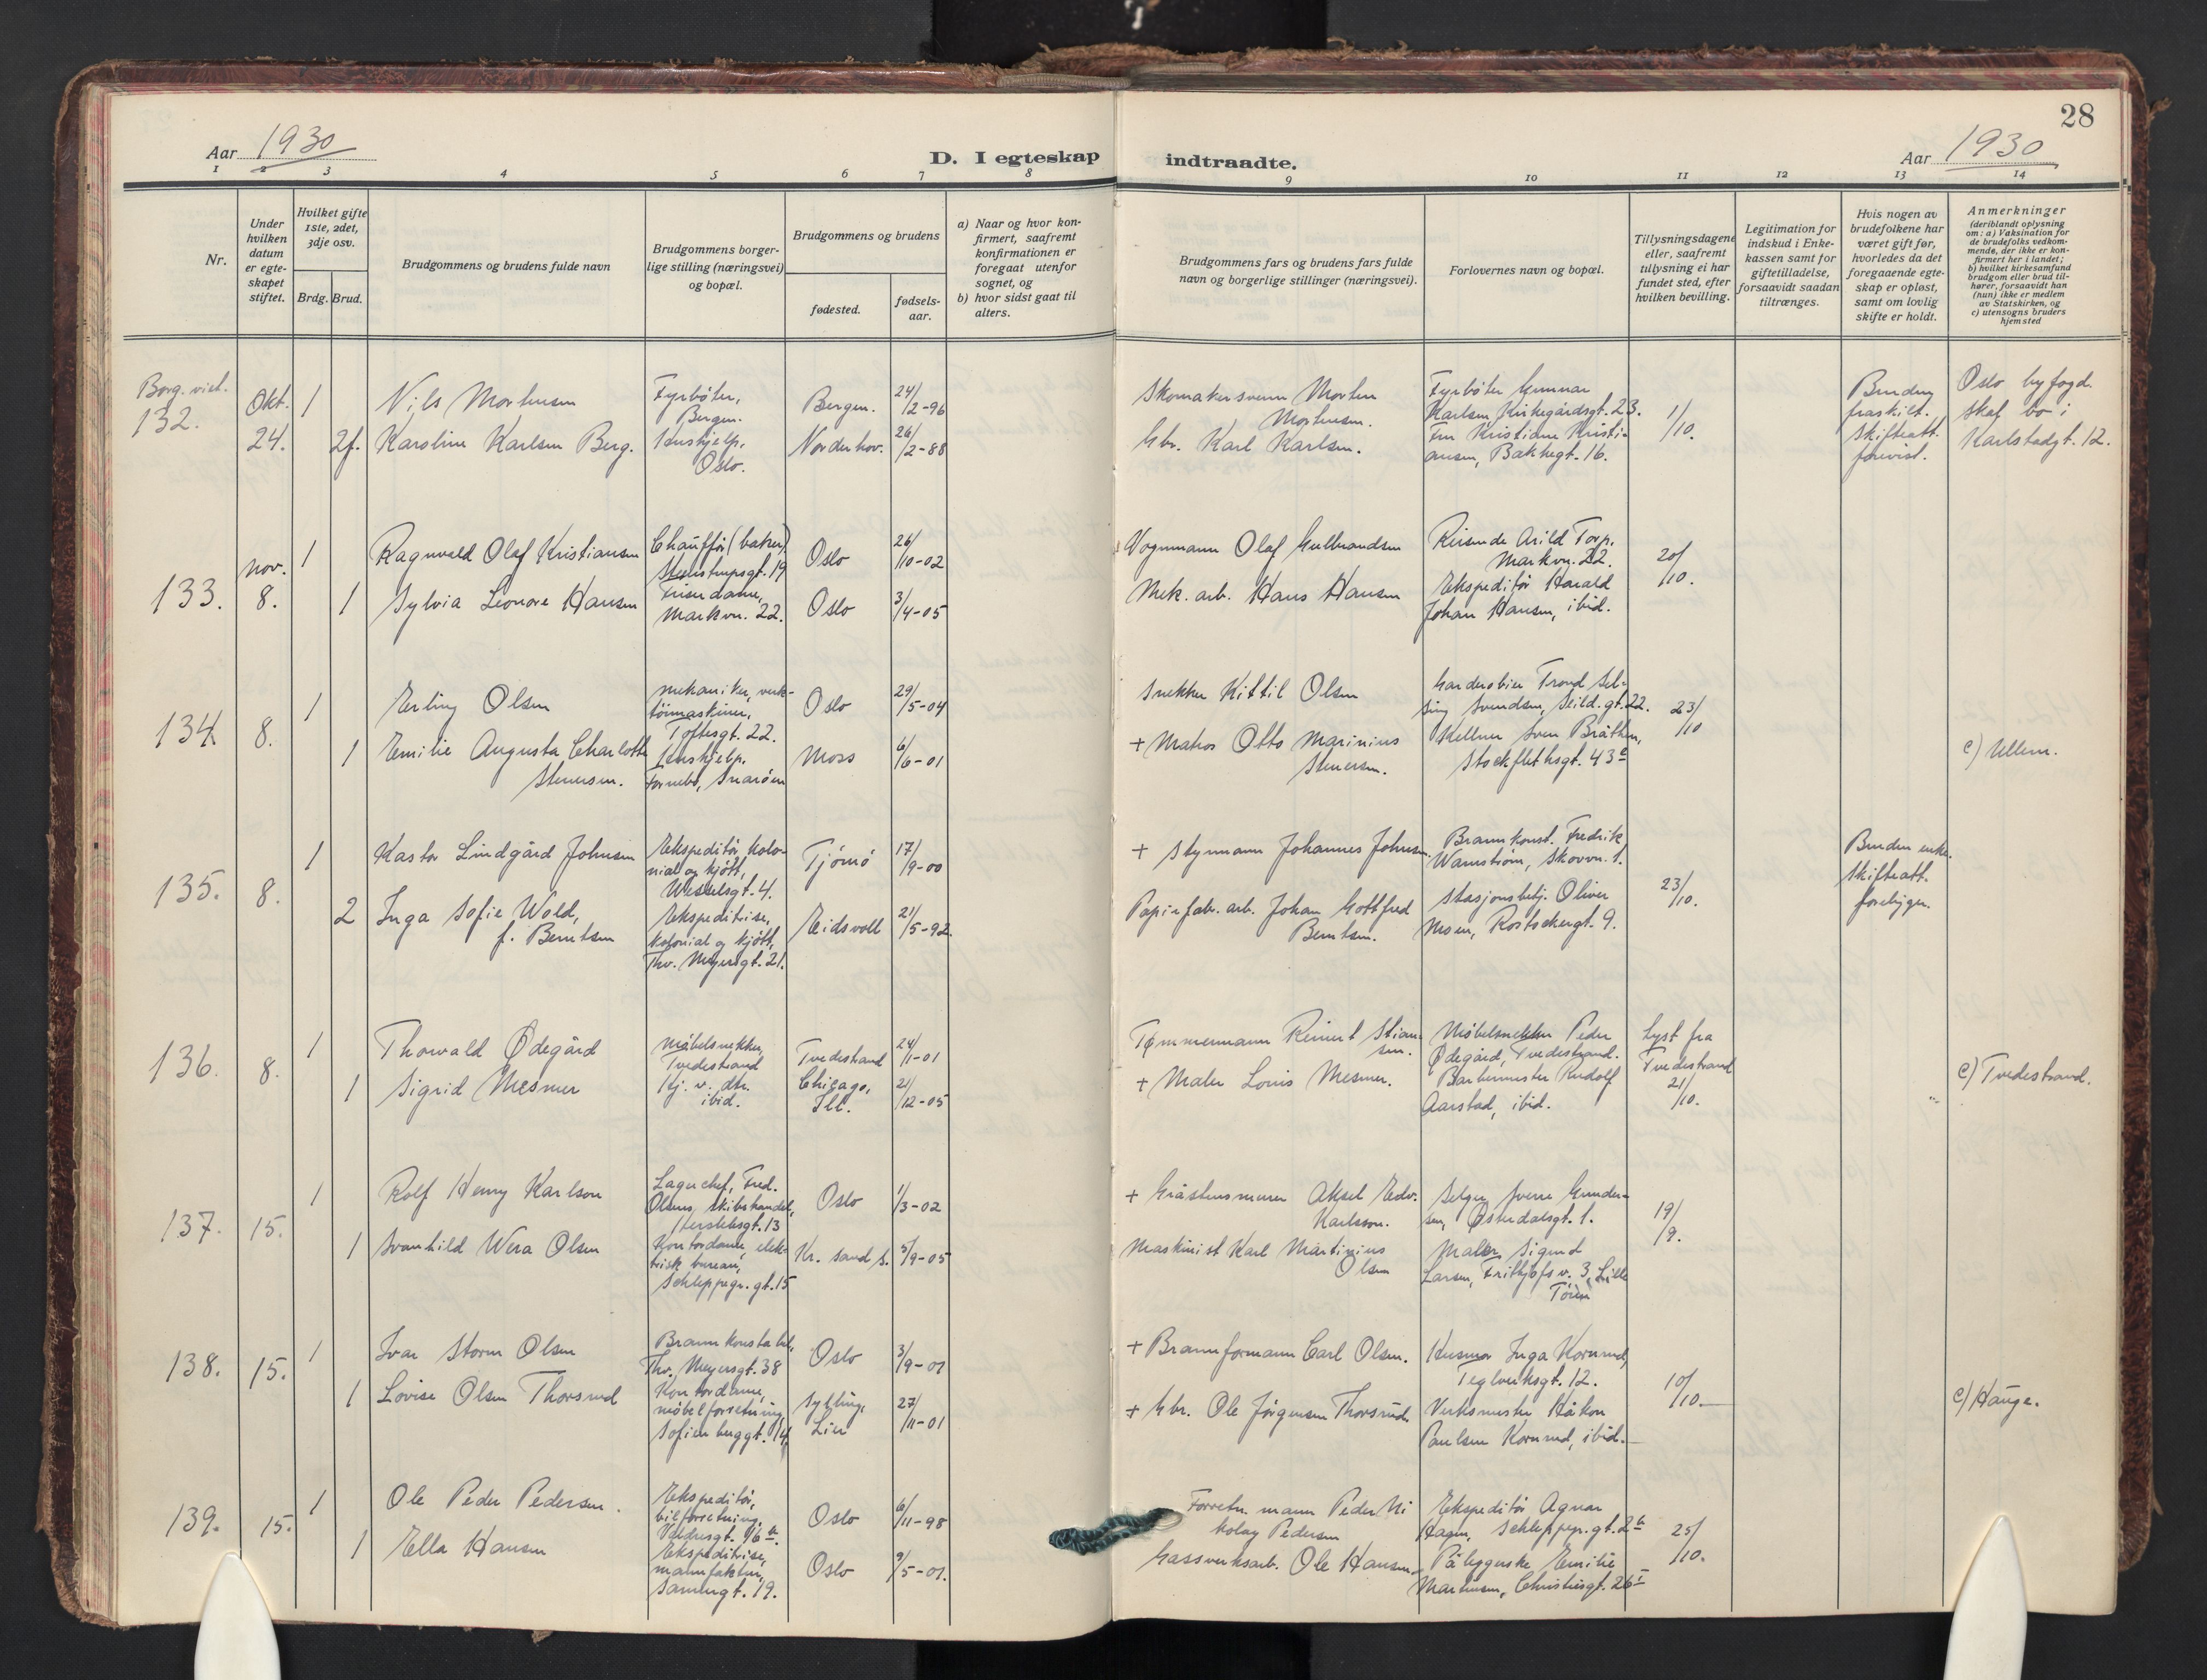 28
Aar 1930
D. I egteskap indtraadte.
Aar 1930
1 2 3 4 5 6 7 8 9 10 11 12 13 14
Nr.
Under hvilken datum er egte-skapet stiftet.
Hvilket gifte 1ste, 2det, 3dje osv.
Brdg. Brud.
Brudgommens og brudens fulde navn
Brudgommens borger-lige stilling (næringsvei) og bopæl.
Brudgommens og brudens
fødested.
fødsels-aar.
a) Naar og hvor kon-firmert, saafremt konfirmationen er foregaat utenfor sognet, og
b) hvor sidst gaat til alters.
Brudgommens fars og brudens fars fulde navn og borgerlige stillinger (næringsvei).
Forlovernes navn og bopæl.
Tillysningsdagene eller, saafremt tillysning ei har fundet sted, efter hvilken bevilling.
Legitimation for indskud i Enke-kassen samt for giftetilladelse, forsaavidt saadan tiltrænges.
Hvis nogen av brudefolkene har været gift før, hvorledes da det foregaaende egte-skap er opløst, samt om lovlig skifte er holdt.
Anmerkninger
(deriblandt oplysning om: a) Vaksination for de brudefolks vedkom-mende, der ikke er kon-firmert her i landet; b) hvilket kirkesamfund brudgom eller brud til-hører, forsaavidt han (hun) ikke er medlem av Statskirken, og c) utensogns bruders hjemsted
Borg. viet.
132.
Okt.
24.
1
Nils Mortensen
Fyrbøter,
Bergen.
Bergen.
24/2-96
Skomakersvenn Morten
Mortensen.
Fyrbøter Gunnar
Karlsen, Kirkegårdsgt. 23.
1/10.
Bruden
fraskilt.
Skifteatt.
forevist.
Oslo byfogd.
Skal bo i
Karlstadgt. 12.
2f.
Karoline Karlsen Berg.
Hushjelp,
Oslo.
Norderhov.
26/2-88
Gbr. Karl Karlsen.
Fru Kristiane Kristi-
ansen, Bakkegt. 16.
133.
nov.
8.
1
Ragnvald Olaf Kristiansen
Chauffør (baker)
Steenstrupsgt. 19
Oslo
26/10-02
Vognmann Olaf Gulbrandsen
Reisende Arild Torp,
Markvn. 22.
20/10.
1
Sylvia Leonore Hansen
Friserdame,
Markvn. 22.
Oslo
3/4-05
Mek. arb. Hans Hansen
Ekspeditør Harald
Johan Hansen, ibid.
134.
8.
1
Erling Olsen
Mekaniker, verk-
tøimaskiner,
Toftesgt. 22.
Oslo
29/5-04
Snekker Kittil Olsen
Garderobier Trond Sel-
Svendsen, Seild. gt. 22.
23/10
1
Emilie Augusta Charlotte
Stenersen.
Hushjelp,
Fornebo, Snarøen
Moss
6/6-01
+ Matros Otto Marinius
Stenersen.
Kellner Sven Bråthen,
Stockflethsgt. 43
c) Ullern.
135.
8.
1
Kastor Lindgård Johnsen
Ekspeditør kolo-
nial og kjøtt,
Wesselsgt. 4.
Tjømø
17/9-00
+ Styrmann Johannes Johnsen.
Brannkonst. Fredrik
Wannstrøm, Skovvn. 1.
23/10.
Bruden enke.
Skifteatt.
foreligger.
2
Inga Sofie Wold,
f. Berntsen
Ekspeditrise,
kolonial og kjøtt,
Thv. Meyersgt. 21.
Eidsvoll
21/5-92.
Papirfabr. arb. Johan Gottfred
Berntsen.
Stasjonsbetj. Oliver
Moen, Rostockergt. 9.
136.
8.
1
Thorvald Ødegård
Møbelsnekker,
Tvedestrand
Tvedestrand
24/1-01
Tømmermann Reinert Stian-
sen.
Møbelsnekker Peder
Ødegård, Tvedestrand.
Lyst fra
Tvedestrand
21/10.
1
Sigrid Mesmer
Hj. v. dtr.
ibid.
Chicago,
Ill.
21/12-05
+ Maler Louis Mesmer.
Barbermester Rudolf
Aarstad, ibid.
c) Tvedestrand.
137.
15.
1
Rolf Henry Karlson
Lagerchef, Fred.
Olsens, Skibshandel,
Herslebsgt. 13
Oslo
1/3-02
+ Gråstensmurer Aksel Edv.
Karlsson.
Selger Sverre Gunder-
sen, Østerdalsgt. 1.
19/9.
1
Svanhild Wera Olsen
Kontordame, elek-
trisk bureau,
Schleppegr. gt. 15
Kr. sand S.
5/9-05
Maskinist Karl Martinius
Olsen
Maler Sigurd
Larsen, Fritjofs v. 3, Lille
Tøien
138.
15.
1
Ivar Storm Olsen
Brannkonstabel,
Thv. Meyersgt. 38
Oslo
3/9-01
+ Brannformann Carl Olsen.
Husmor Inga Kornrud,
Teglverksgt. 12.
10/10.
1
Lovise Olsen Thorsrud
Kontordame,
møbelforretning
Sofienberggt. 14.
Sylling,
Lier
27/11-01
+ Gbr. Ole Jørgensen Thorsrud.
Verksmester Håkon
Paulsen Kornrud, ibid.
c) Hauge.
139.
15.
1
Ole Peder Pedersen.
Ekspeditør,
bilforretning,
Valdresgt. 16 a.
Oslo
6/11-98
Forretn. mann Peder Ni
kolay Pedersen
Ekspeditør Agnar
Hagen, Schleppegr. gt. 2
25/10.
1
Ella Hansen
Ekspeditrise,
manufaktur,
Sannergt. 19.
Oslo
9/5-01.
Gassverksarb. Ole Hansen.
Påleggerske Emilie
Martinsen, Christiesgt. 26